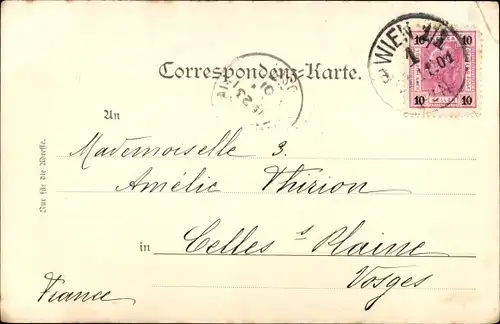 10 10
WIEN 1/1
1
01
10 10
Correspondenz-Karte.
An
Mademoiselle 3.
Amélie Thirion
in Celles s Plaine
Vosges
France
Nur für die Adresse.